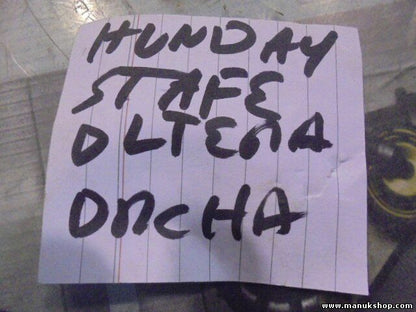 HUNDAY
STAFE
DLTENA
DNCHA
www.manukshop.com